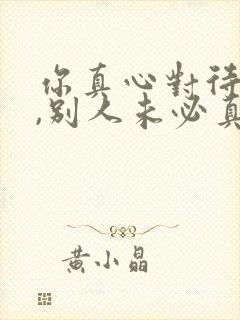 你真心對待
,别人未必真
黄小晶